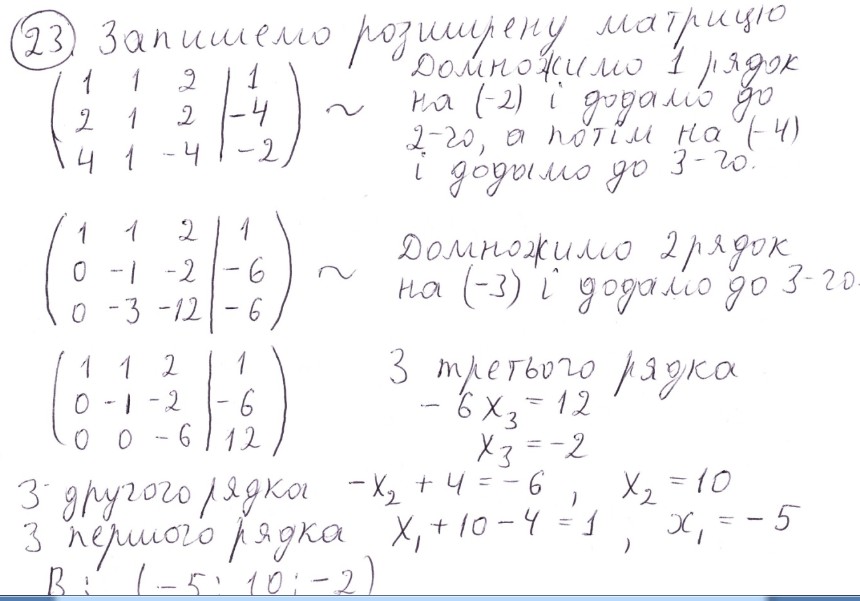 23. Запишемо розширену матрицю
( 1 1 2 | 1 )
( 2 1 2 | -4 ) ~
( 4 1 -4 | -2 )
Домножимо 1 рядок
на (-2) і додамо до
2-го, а потім на (-4)
і додамо до 3-го.
( 1 1 2 | 1 )
( 0 -1 -2 | -6 ) ~
( 0 -3 -12 | -6 )
Домножимо 2 рядок
на (-3) і додамо до 3-го.
( 1 1 2 | 1 )
( 0 -1 -2 | -6 )
( 0 0 -6 | 12 )
З третього рядка
-6x₃ = 12
x₃ = -2
З другого рядка -x₂ + 4 = -6 , x₂ = 10
З першого рядка x₁ + 10 - 4 = 1 , x₁ = -5
В: (-5; 10; -2)